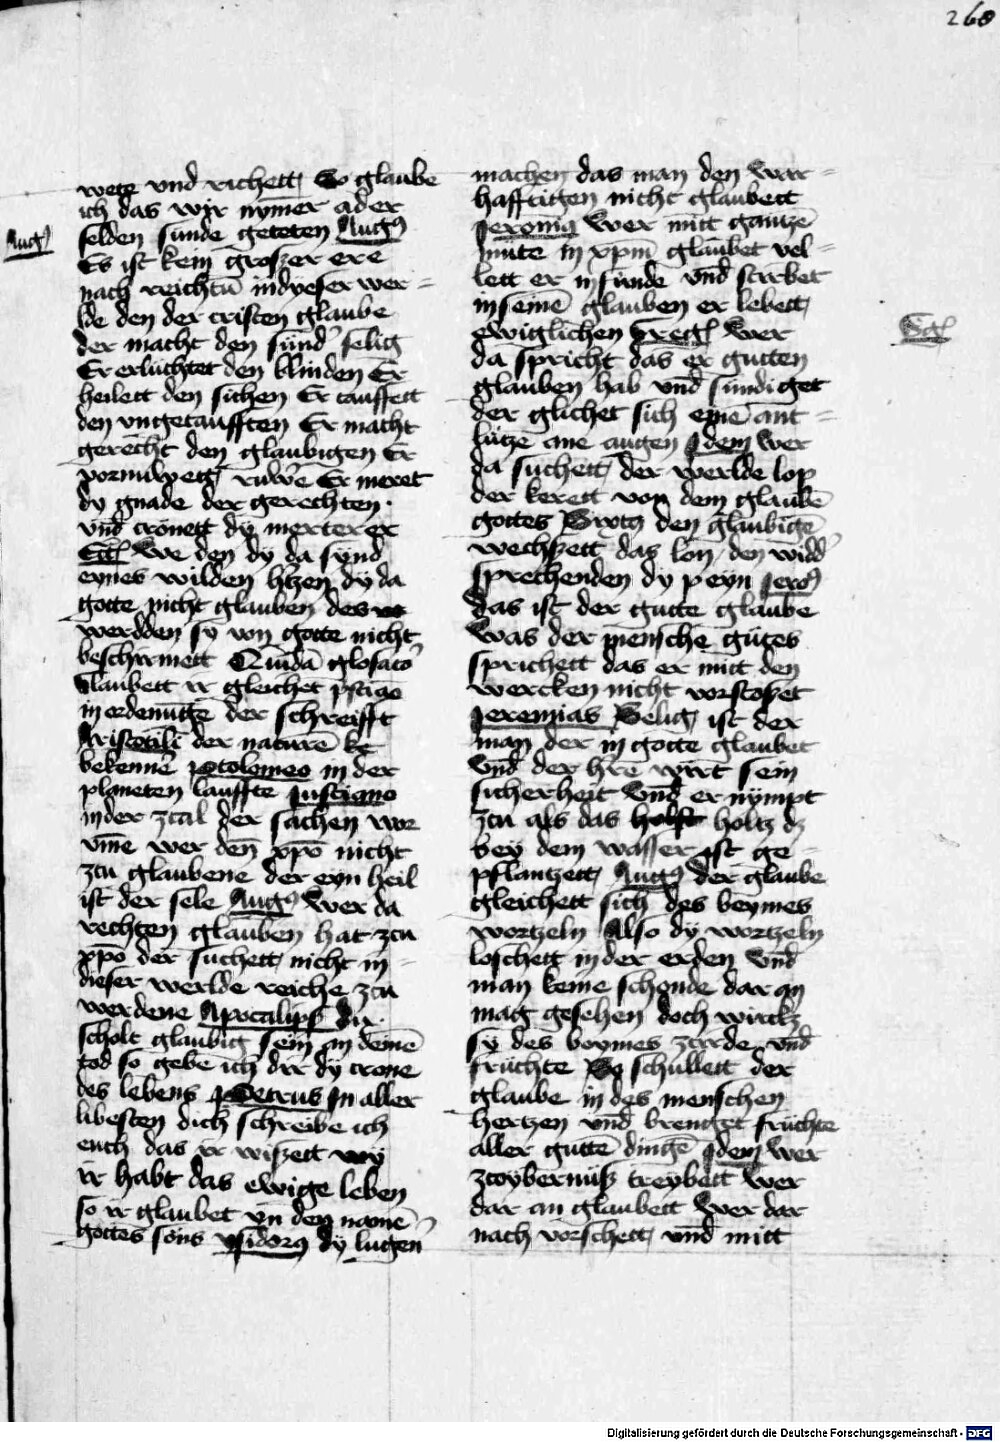 268
wete vnd richett, So glaube
ich das wir nymer ader
selden sunde geteten Augꝰ
Augꝰ
Es ist kein groszer ere
nach reichtū indyeser wer=
lde den der cristen glaube
der macht den sūnd' selig
Er erluchtet den blinden Er
heilett den sichen Er tauffett
den vngetaufften Er macht
gerecht den glaubigen Er
ruwē Er meret
dy gnade der gerechten
vnd crönett dy merterer
We den dy da synd
eynes wilden h'tzen dy da
gotte nicht glauben des
werdden sy von gotte nicht
beschirmett Quidā glosato'
Glaubett ir gleichet
in ordenūge der schreifft
Aristotili der naturē
bekennē ptolomeo in der
planeten lauffte Justiano
inder zcal der sachen wor
vm̄e wer den̄ xp̄o nicht
zcu glaubene der eyn heil
ist der sele Augꝰ Wer da
rechten glauben hat zcu
xp̄o der suchett nicht in=
dieser werlde reiche zcu
werdene Apocalips du
scholt glaubig sein an deinē
tod so gebe ich dir dy crone
des lebens Petrus In aller
libesten dich schreibe ich
euch das ir wiszett wy
ir habt das ewige leben
so ir glaubet yn den namē
gottes sons ysidorꝰ dy lugen'
machen das man den war=
hafftigen nicht glaubett
Jeronimꝰ Wer mitt gantzē
mute in xp̄m glaubet vel=
lett er in sunde vnd stirbet
in seinē glauben er lebett
ewiglichen Greg' Wer
da spricht das er gutten
glauben hab vnd sundiget
der glichet sich eynē ant=
lutze ane augen Idem Wer
da suchett der werlde lop
der kerett von dem glaubē
gottes den glaubigē
wechszett das lon den widd'
sprechenden dy peyn Jeroꝰ
das ist der gutte glaube
Was der mensche gutes
sprichett das er mitt den
wercken nicht vorstoszet
Jeremias Selig ist der
man der in gotte glaubet
Vnd der h're wirt sein
sicherheit Vnd er nympt
zcu als das holtz dz
bey dem wasser ist ge=
pflantzett Augꝰ der glaube
gleichett sich des beymes
wortzeln Also dy wortzeln
loschett in der erden Vnd
man keine schonde dar an
mag gesehen doch wirckz
sy des boymes zcirde vnd
früchte So schullett der
glaube in des menschen
hertzen vnd brenget früchte
aller guttē dingē Idem wer
zcoybernüsz treybett wer
dar an glaubett Wer dar
nach vorschett vnd mitt
Digitalisierung gefördert durch die Deutsche Forschungsgemeinschaft - DFG